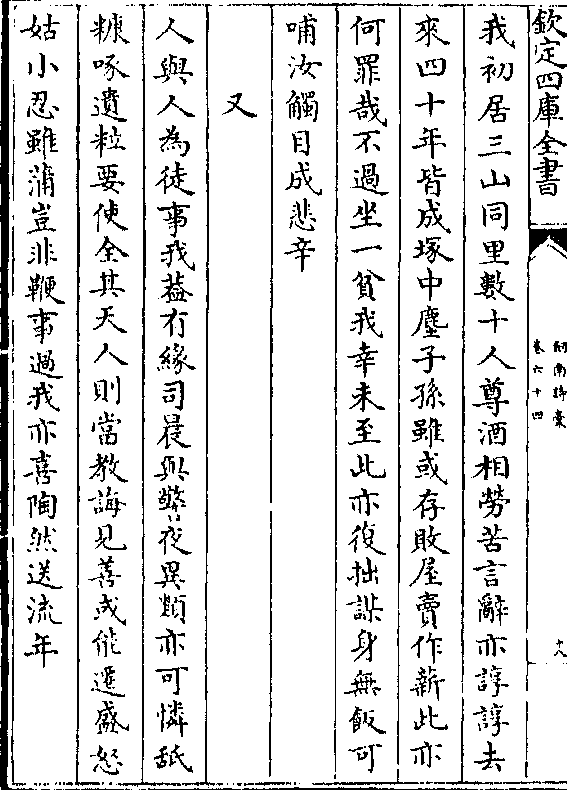 欽定四庫全書
劒南詩稾
卷六十四
十八
我初居三山同里數十人尊酒相勞苦言辭亦諄諄去
來四十年皆成塚中塵子孫雖或存敗屋賣作薪此亦
何罪哉不過坐一貧我幸未至此亦復拙謀身無飯可
哺汝觸目成悲辛
又
人與人為徒事我葢有緣司晨與警夜異類亦可憐舐
糠啄遺粒要使全其天人則當教誨見善或能遷盛怒
姑小忍雖蒲豈非鞭事過我亦喜陶然送流年